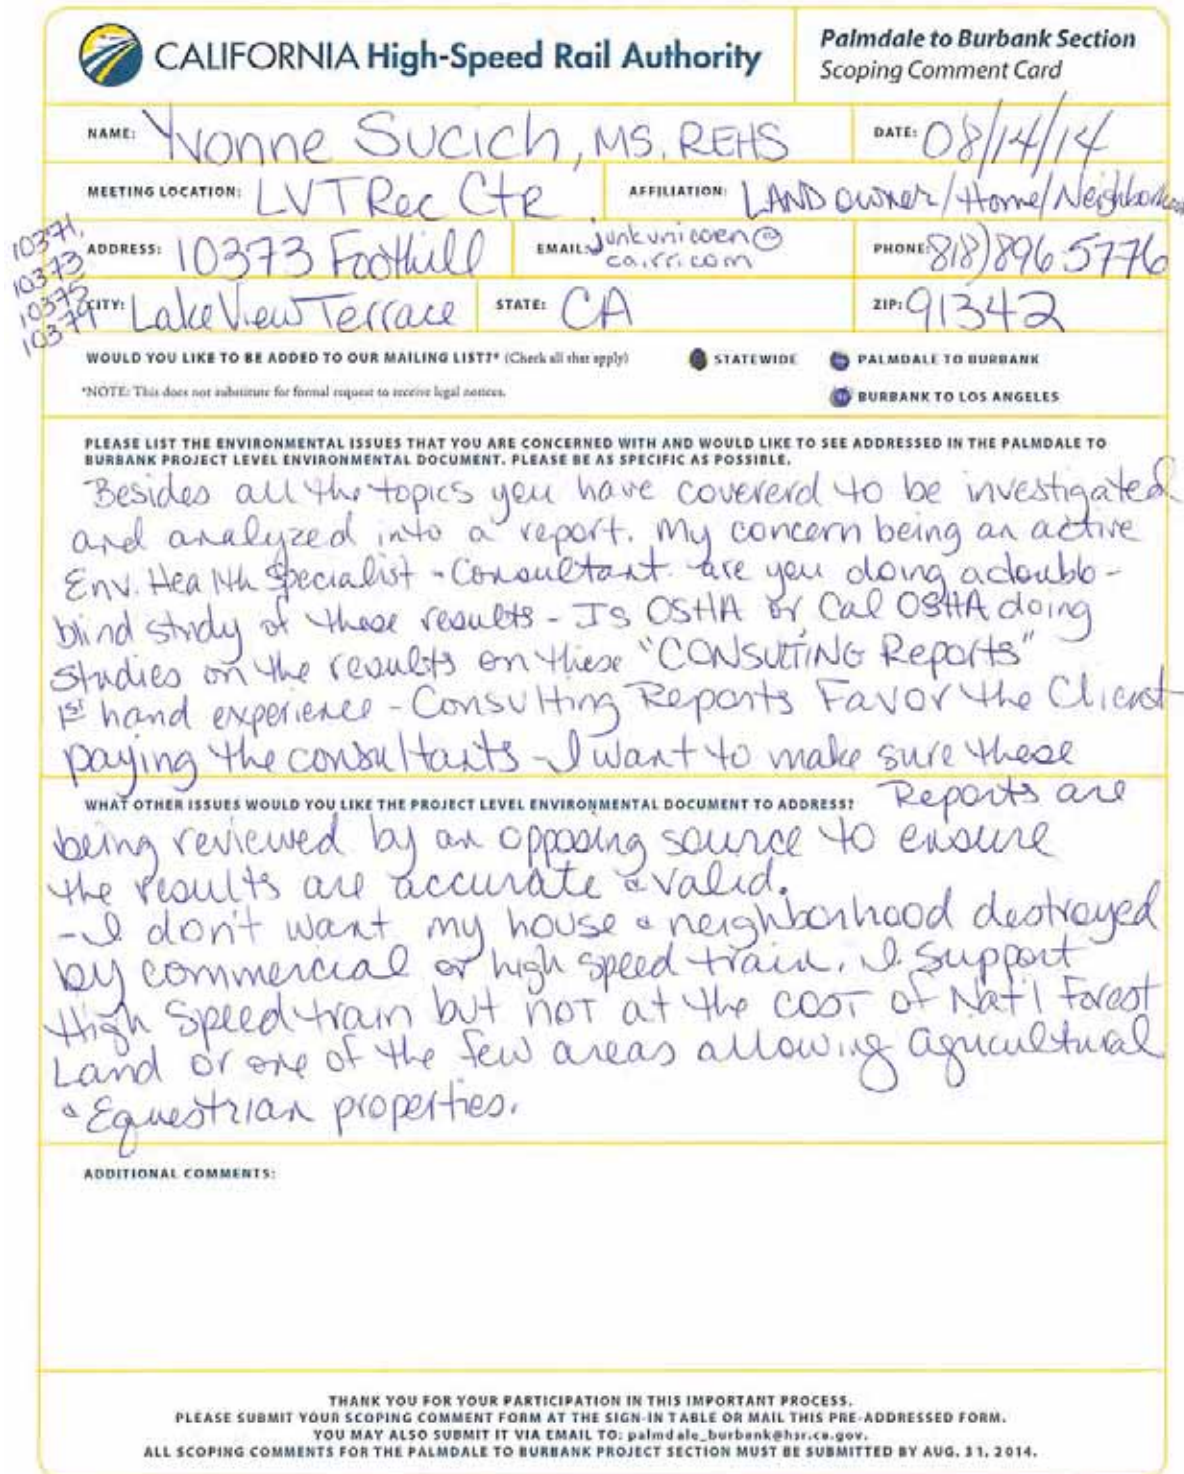 CALIFORNIA High-Speed Rail Authority
Palmdale to Burbank Section
Scoping Comment Card
NAME: Yvonne Sucich, MS, REHS
DATE: 08/14/14
MEETING LOCATION: LVT Rec Ctr
AFFILIATION: LAND owner/Home/Neighborhood
10371,
10373
10375
10379
ADDRESS: 10373 Foothill
EMAIL: junkunicoen@
ca.rr.com
PHONE: 818) 896 5776
CITY: Lake View Terrace
STATE: CA
ZIP: 91342
WOULD YOU LIKE TO BE ADDED TO OUR MAILING LIST?* (Check all that apply)
STATEWIDE
PALMDALE TO BURBANK
*NOTE: This does not substitute for formal request to receive legal notices.
BURBANK TO LOS ANGELES
PLEASE LIST THE ENVIRONMENTAL ISSUES THAT YOU ARE CONCERNED WITH AND WOULD LIKE TO SEE ADDRESSED IN THE PALMDALE TO
BURBANK PROJECT LEVEL ENVIRONMENTAL DOCUMENT. PLEASE BE AS SPECIFIC AS POSSIBLE.
Besides all the topics you have covererd to be investigated
and analyzed into a report. My concern being an active
Env. Health Specialist - Consultant. are you doing a double-
blind study of these results - Is OSHA or Cal OSHA doing
studies on the results on these "CONSULTING Reports"
1st hand experience - Consulting Reports Favor the Client
paying the consultants - I want to make sure these
WHAT OTHER ISSUES WOULD YOU LIKE THE PROJECT LEVEL ENVIRONMENTAL DOCUMENT TO ADDRESS? Reports are
being reviewed by an opposing source to ensure
the results are accurate & valid.
- I don't want my house & neighborhood destroyed
by commercial or high speed train. I support
High Speed train but not at the cost of Nat'l Forest
Land or one of the few areas allowing agricultural
& Equestrian properties.
ADDITIONAL COMMENTS:
THANK YOU FOR YOUR PARTICIPATION IN THIS IMPORTANT PROCESS.
PLEASE SUBMIT YOUR SCOPING COMMENT FORM AT THE SIGN-IN TABLE OR MAIL THIS PRE-ADDRESSED FORM.
YOU MAY ALSO SUBMIT IT VIA EMAIL TO: palmdale_burbank@hsr.ca.gov.
ALL SCOPING COMMENTS FOR THE PALMDALE TO BURBANK PROJECT SECTION MUST BE SUBMITTED BY AUG. 31, 2014.